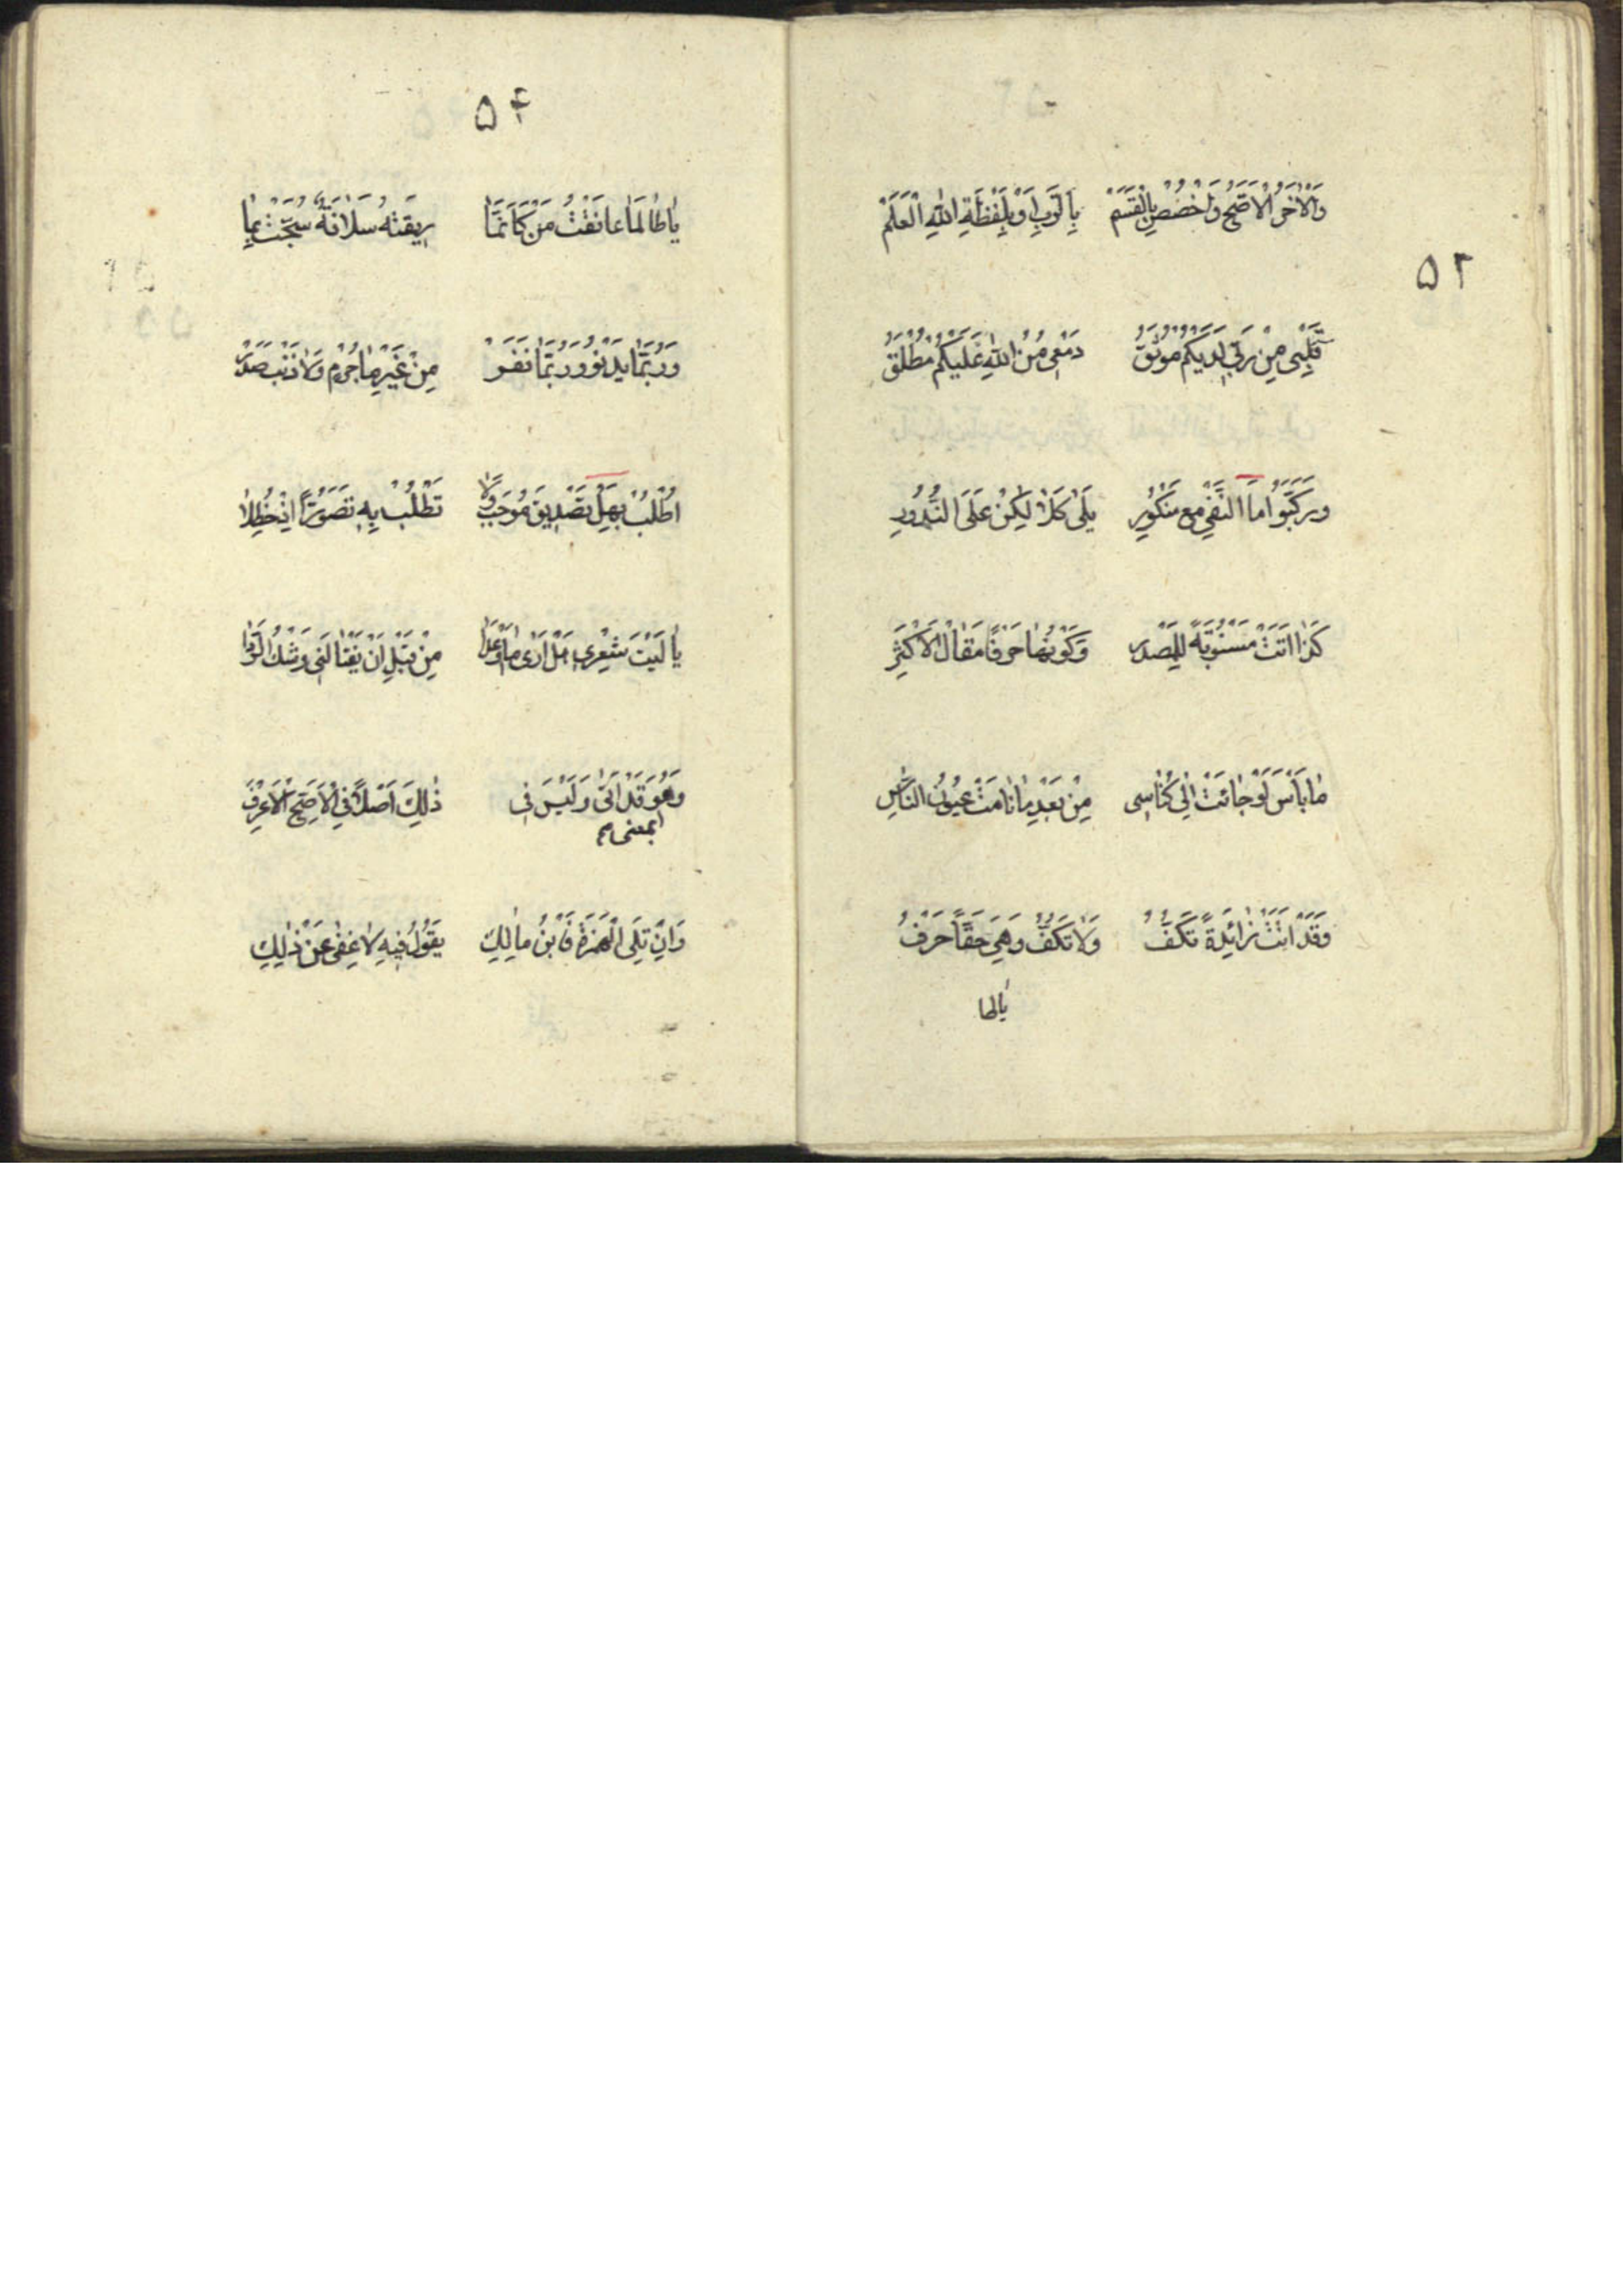 وَالْاٰخَرُ الْاَصَحُّ وَاخْصُصْ بِالْقَسَمْ بِالرَّبِّ اَوْ بِلَفْظَةِ اللّٰهِ الْعَلَمْ
۵۳
قَلْبِی مِنْ رَبِّی لَدَيْكُمْ مُوثَقُ دَمْعِی مُنْ اللّٰهِ عَلَيْكُمْ مُطْلَقُ
وَرَكَّبُوا مَا النَّفْیِ مَعْ مَنْكُورِ بَلٰی كَلَا لٰكِنْ عَلَی النُّدُورِ
كَذٰا اَتَتْ مَسْبُوقَةً لِلْمَصْدَرِ وَكَوْنُهٰا حَرْفًا مَقٰالُ الْاَكْثَرِ
مٰا بَأْسَ لَوْ جٰائَتْ اِلٰی كُنٰاسِی مِنْ بَعْدِ مٰا نٰامَتْ عُيُونُ النّٰاسِ
وَقَدْ اَتَتْ زٰائِدَةً تَكُفُّ وَلٰا تَكُفُّ وَهِیَ حَقًّا حَرْفُ
يٰا طٰا لها
۵۴
يٰا طٰالَمٰا عٰانَقْتُ مَنْ كَاَنَّمٰا رِيقَتُهُ سُلَافَةٌ شُجَّتْ بِمٰا
وَرُبَّمٰا يَدْنُو وَرُبَّمٰا نَفَرْ مِنْ غَيْرِ مٰا جُرْمٍ وَلٰا ذَنْبٍ صَدَرْ
اُطْلُبْ بِهَلْ تَصْدِيقَ مُوجَبٍ وَلٰا تَطْلُبْ بِهِ تَصَوُّرًا اِذْ حُظِلٰا
يٰا لَيْتَ شِعْرِی هَلْ اَرٰی مٰا وَعَدٰا مِنْ قَبْلِ اَنْ يَغْتٰالَنِی وَشْكُ الرَّدٰی
وَهُوَ قَدْ اَتٰی وَلَيْسَ فِی ذٰلِكَ اَصْلًا فِی الْاَصَحِّ الْاَعْرَفِ
بمعنی
وَاِنْ تَلِی الْهَمْزَةَ فَابْنُ مٰالِكِ يَقُولُ فِيهِ لٰا غِنٰی عَنْ ذٰلِكِ